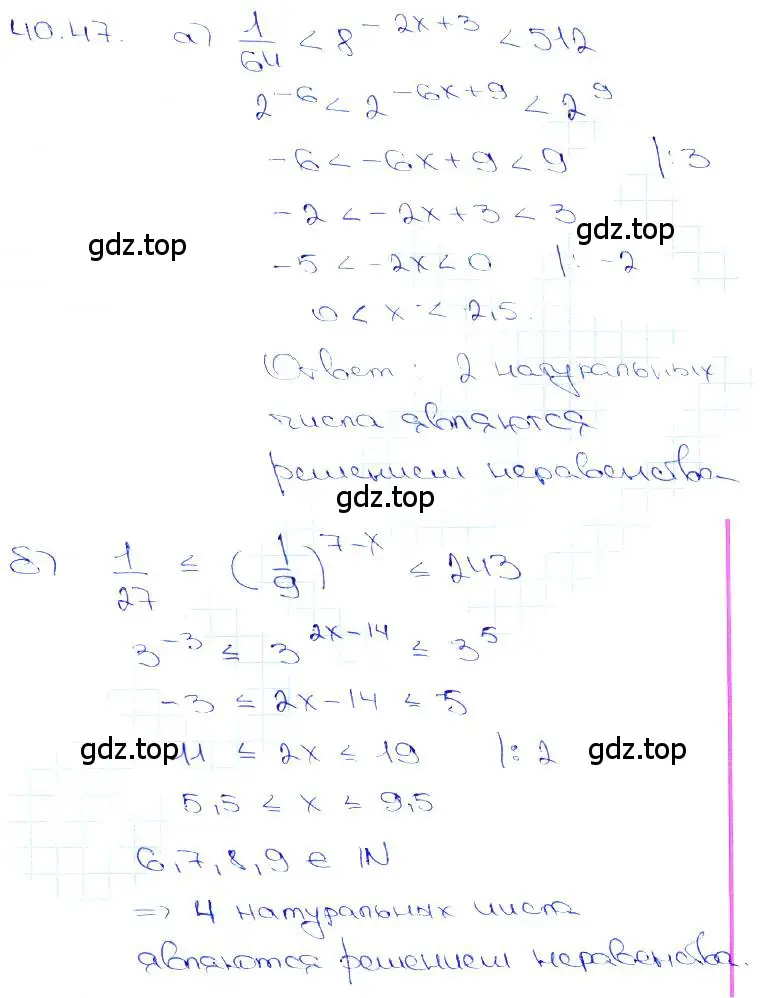 40.47. а) 1/64 < 8^(-2x+3) < 512
2^(-6) < 2^(-6x+9) < 2^9
-6 < -6x+9 < 9 |:3
-2 < -2x+3 < 3
gdz.top gdz.top
-5 < -2x < 0 |: -2
0 < x < 2,5.
Ответ: 2 натуральных
числа являются
решением неравенства
gdz.top
б) 1/27 ≤ (1/9)^(7-x) ≤ 243
3^(-3) ≤ 3^(2x-14) ≤ 3^5
-3 ≤ 2x-14 ≤ 5
gdz.top 11 ≤ 2x ≤ 19 |:2 gdz.top
5,5 ≤ x ≤ 9,5
6,7,8,9 ∈ ℕ
=> 4 натуральных числа
являются решением неравенства.